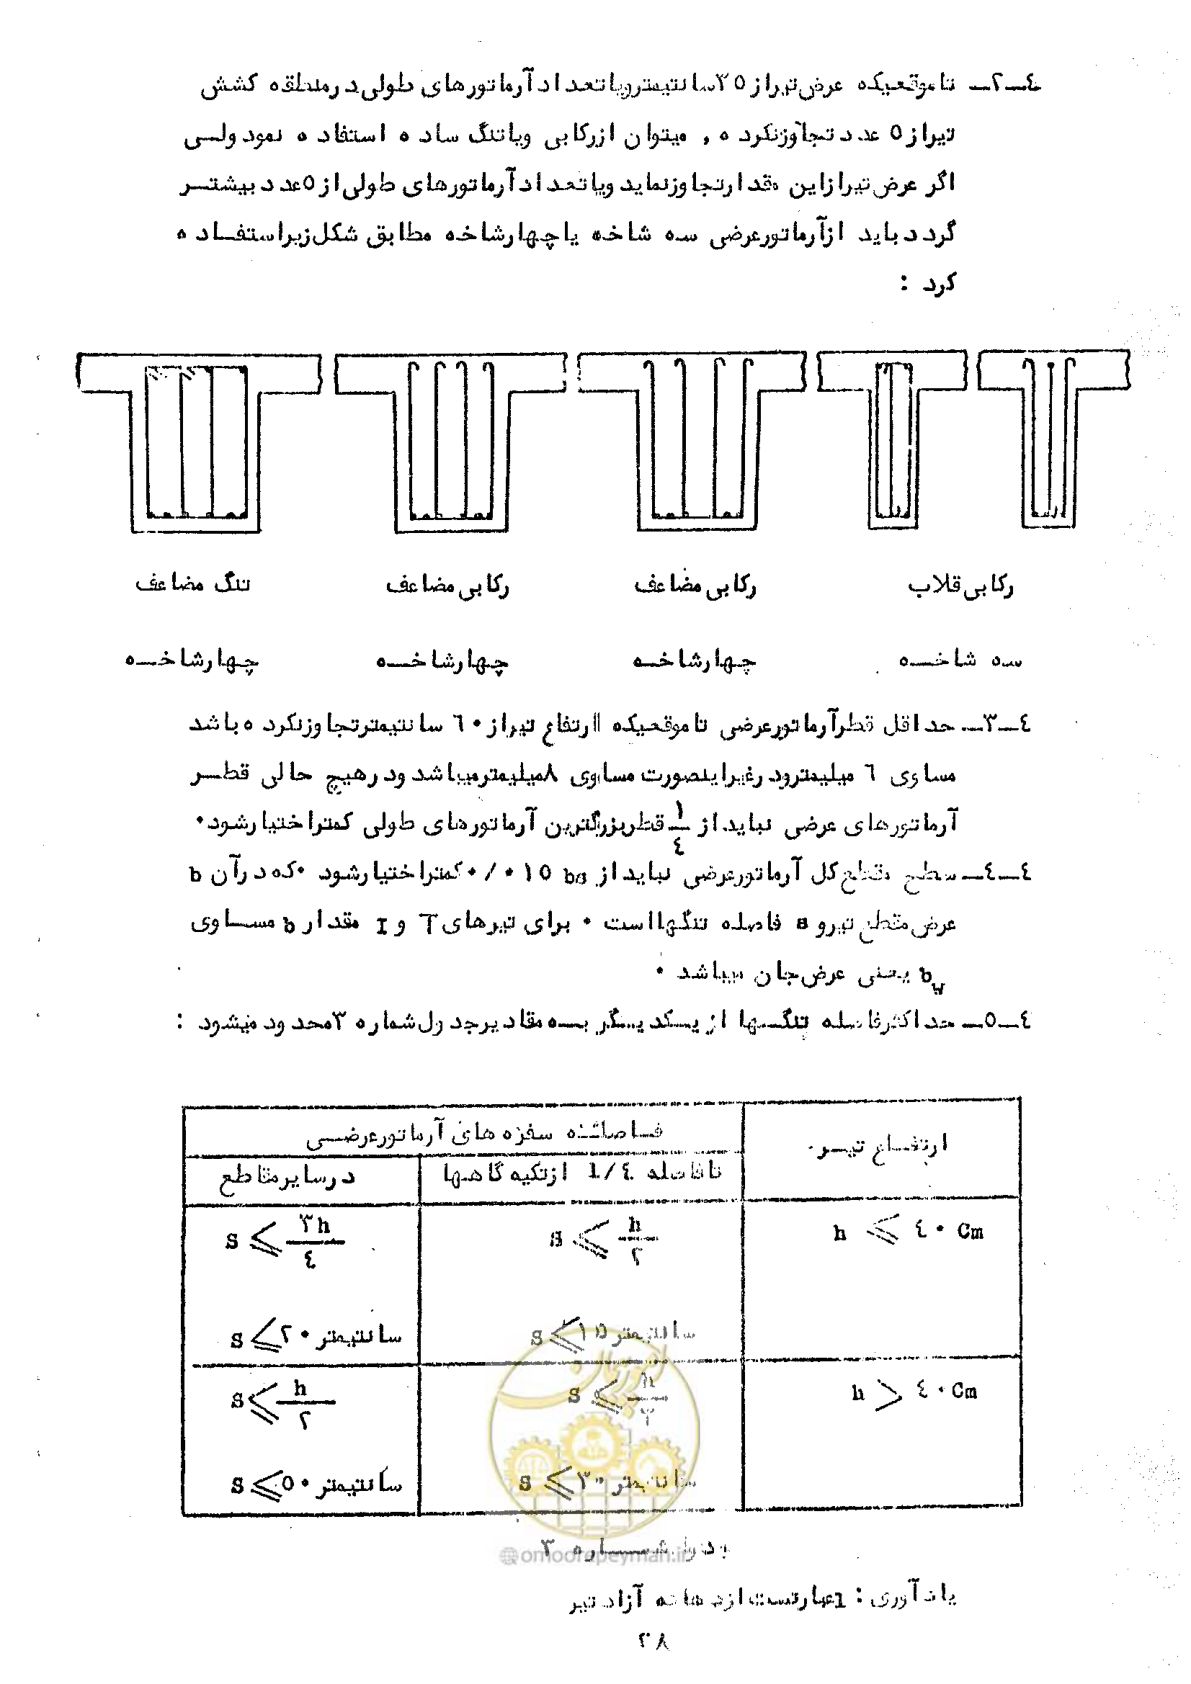 ٤ــ٢ــ تا موقعیکه عرض تیر از ٣٥ سانتیمتر و یا تعداد آرماتورهای طولی در منطقه کشش
تیر از ٥ عدد تجاوز نکرده , میتوان از رکابی و یا تنگ ساده استفاده نمود ولــی
اگر عرض تیر از این مقدار تجاوز نماید و یا تعداد آرماتورهای طولی از ٥ عدد بیشتــر
گردد باید از آرماتور عرضی سه شاخه یا چهارشاخه مطابق شکل زیر استفــاده
کرد :
رکابی قلاب
رکابی مضاعف
رکابی مضاعف
تنگ مضاعف
سه شاخــه
چهارشاخــه
چهارشاخــه
چهارشاخــه
٤ــ٣ــ حداقل قطر آرماتور عرضی تا موقعیکه ارتفاع تیر از ٦٠ سانتیمتر تجاوز نکرده باشد
مساوی ٦ میلیمتر و در غیر اینصورت مساوی ٨ میلیمتر میباشد و در هیچ حالی قطــر
آرماتورهای عرضی نباید از ١/٤ قطر بزرگترین آرماتورهای طولی کمتر اختیار شود٠
٤ــ٤ــ سطح مقطع کل آرماتور عرضی نباید از ٠/٠٠١٥ bs کمتر اختیار شود ٠ که در آن b
عرض مقطع تیر و s فاصله تنگها است ٠ برای تیرهای T و I مقدار b مســاوی
bw یعنی عرض جان میباشد ٠
٤ــ٥ــ حداکثر فاصله تنگــها از یــکدیــگر بــه مقادیر جدول شماره ٣ محدود میشود :
ارتفــاع تیــر
فــاصلــه سفره های آرماتور عرضــی
تا فاصله 1/٤ از تکیه گاهــها
در سایر مقاطع
h ≤ ٤٠ Cm
S ≤ h/٢
S ≤ ٣h/٤
S ≤ ١٥ سانتیمتر
S ≤ ٢٠ سانتیمتر
h > ٤٠ Cm
S ≤ h/٣
S ≤ h/٢
S ≤ ٣٠ سانتیمتر
S ≤ ٥٠ سانتیمتر
جدول شمــاره ٣
@omoorepeyman.ir
یادآوری : 1 عبارتست از دهانه آزاد تیر
٢٨